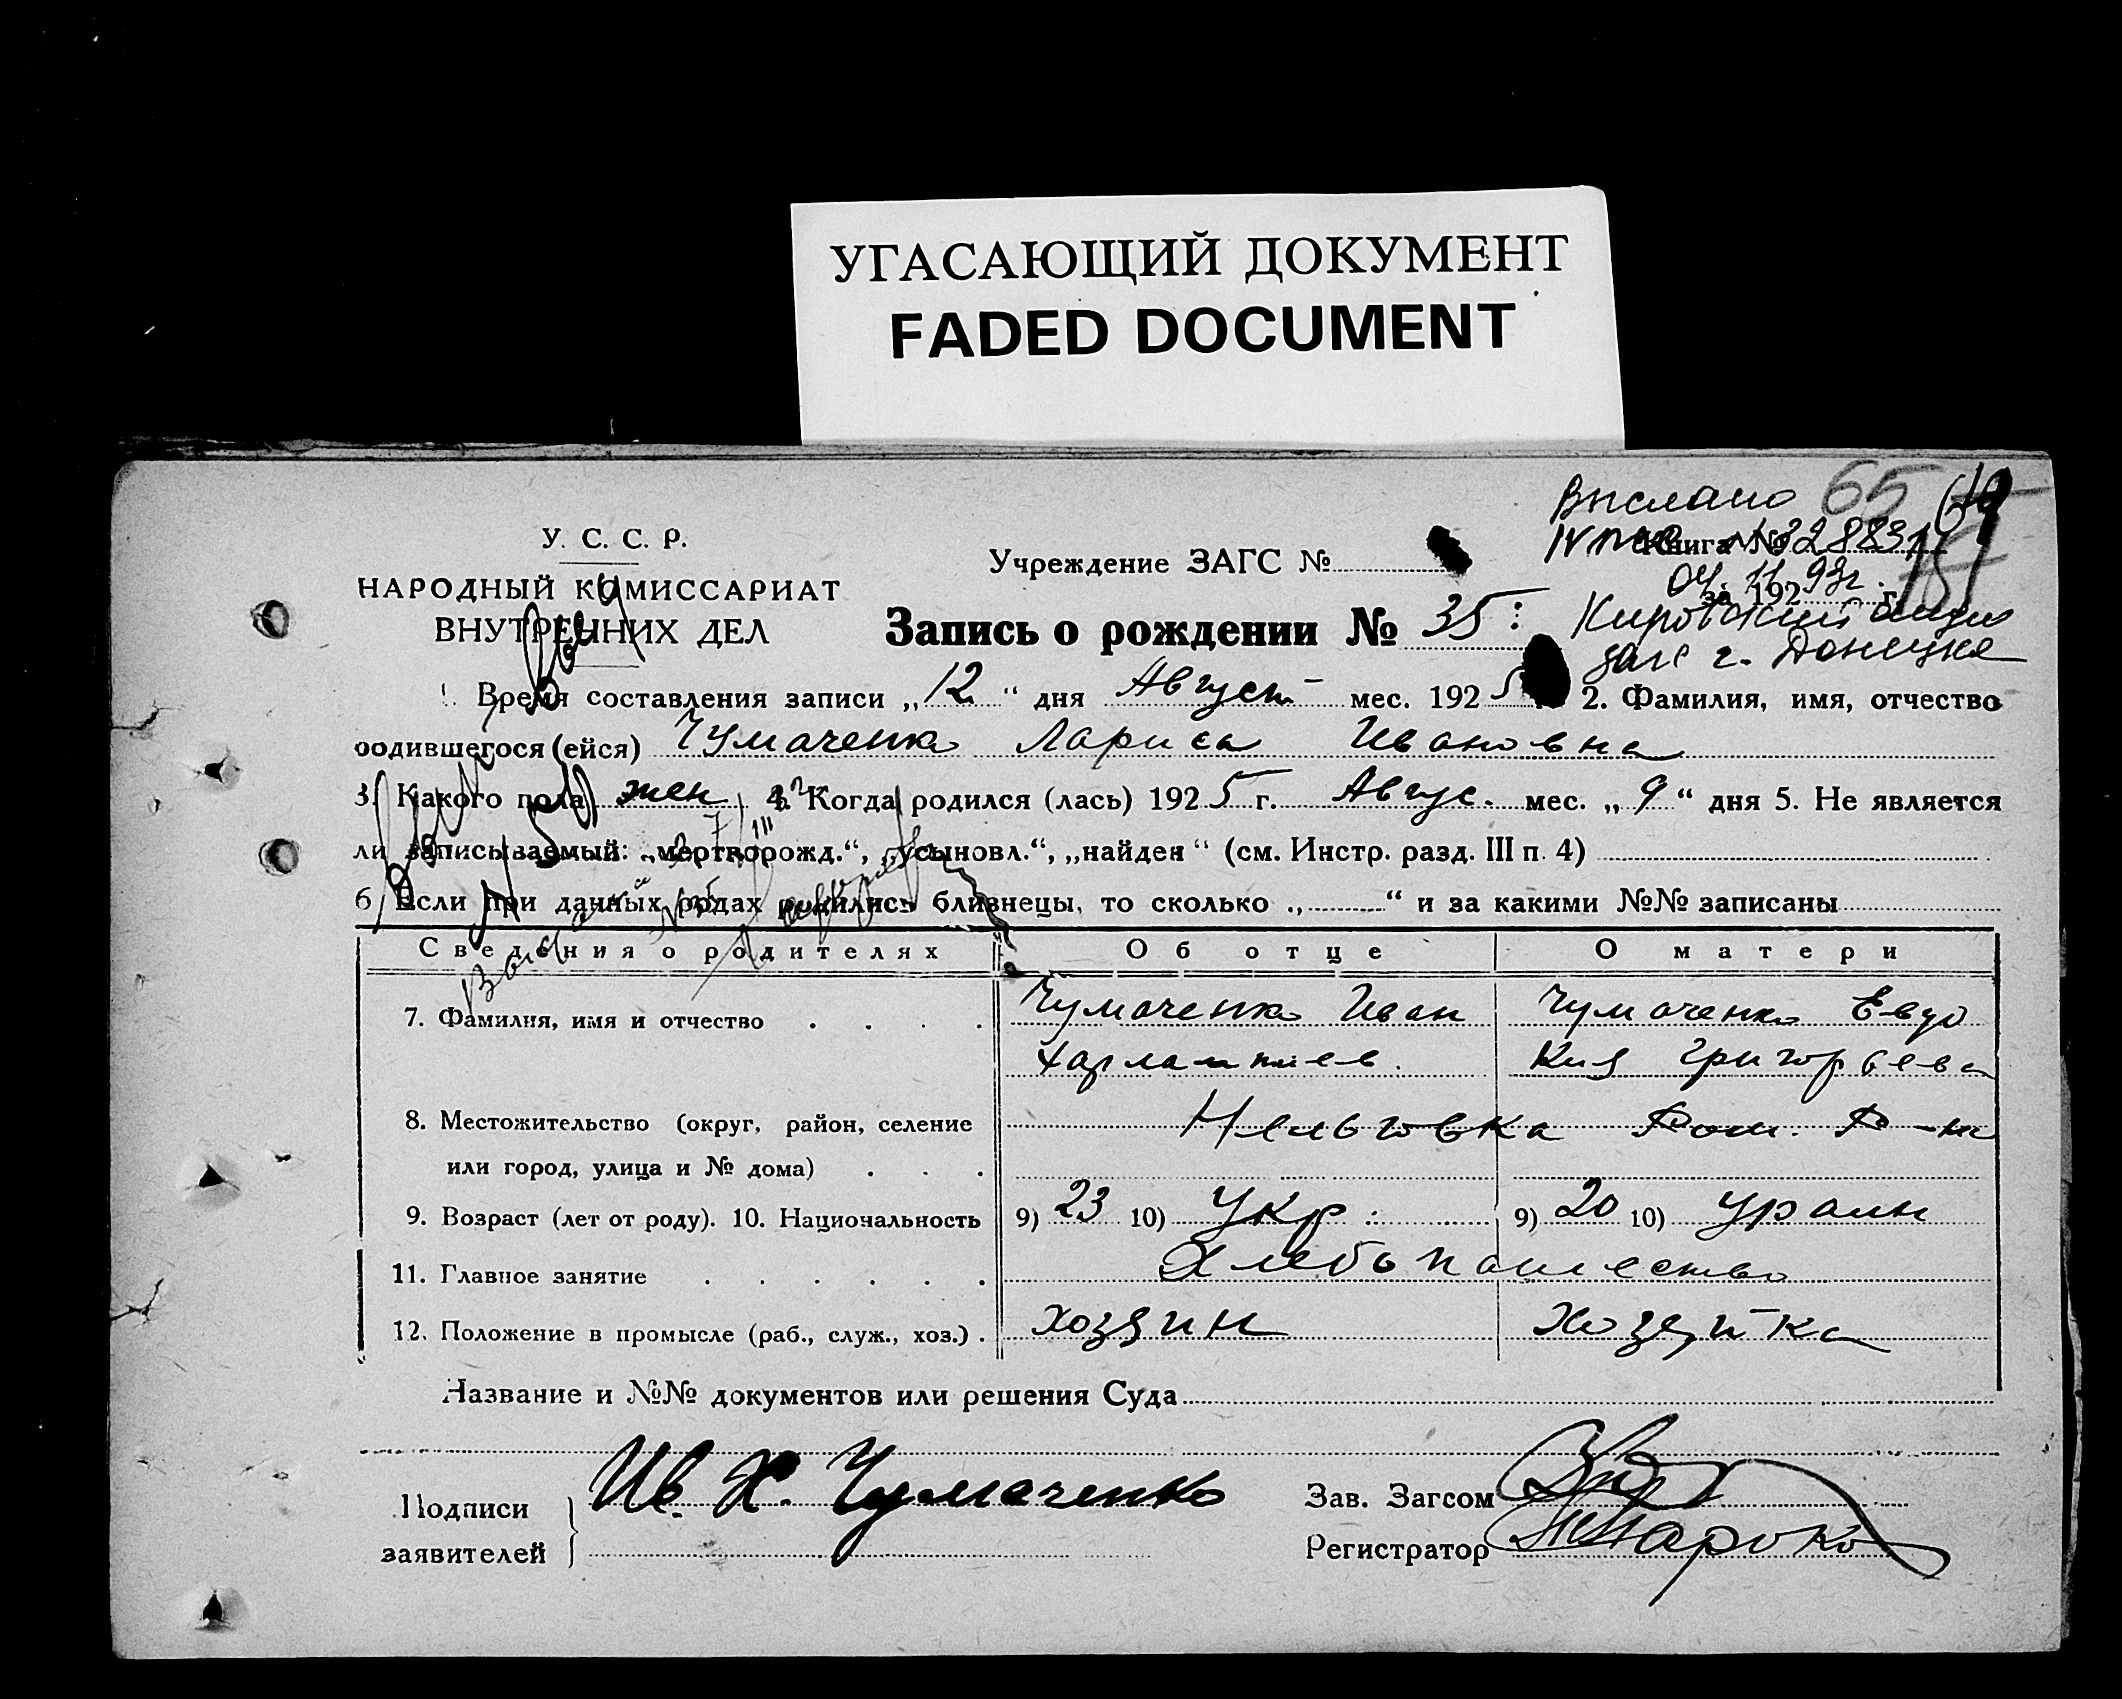 УГАСАЮЩИЙ ДОКУМЕНТ
FADED DOCUMENT
Выслано 65
У. С. С. Р.
НАРОДНЫЙ КОМИССАРИАТ
ВНУТРЕННИХ ДЕЛ
Учреждение ЗАГС №
Книга № 28831
04.11.93г.
за 192 г.
Кировский
загс г. Донецка
Запись о рождении № 35
Время составления записи „12“ дня Август мес. 1925 2. Фамилия, имя, отчество
родившегося (ейся) Чумаченко Лариса Ивановна
3. Какого пола жен 4. Когда родился (лась) 1925 г. Авгус. мес. „9“ дня 5. Не является
ли записываемый: „мертворожд.“, „усыновл.“, „найден“ (см. Инстр. разд. III п. 4)
6. Если при данных родах родились близнецы, то сколько „ “ и за какими №№ записаны
Сведения о родителях Об отце О матери
7. Фамилия, имя и отчество Чумаченко Иван Чумаченко Евдо
Харлампиев. кия Григорьева
8. Местожительство (округ, район, селение
или город, улица и № дома)
9. Возраст (лет от роду). 10. Национальность 9) 23 10) Укр: 9) 20 10)
11. Главное занятие Хлебопашество
12. Положение в промысле (раб., служ., хоз.). хозяин Хозяйка
Название и №№ документов или решения Суда
Подписи
заявителей
Ив. Х. Чумаченко
Зав. Загсом
Регистратор